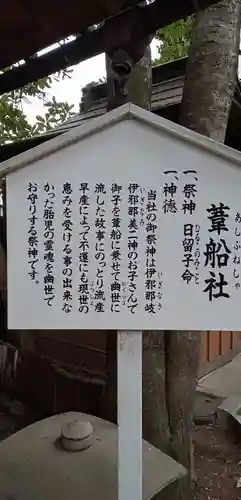 葦船社
あしふねしゃ
一、祭神　日留子命
ひなこのみこと
一、神徳
当社の御祭神は伊邪那岐
いざなぎ
伊邪那美二神のお子さんで
いざなみ
御子を葦船に乗せて幽世に
流した故事にのっとり流産
早産によって不運にも現世の
恵みを受ける事の出来な
かった胎児の霊魂を幽世で
お守りする祭神です。